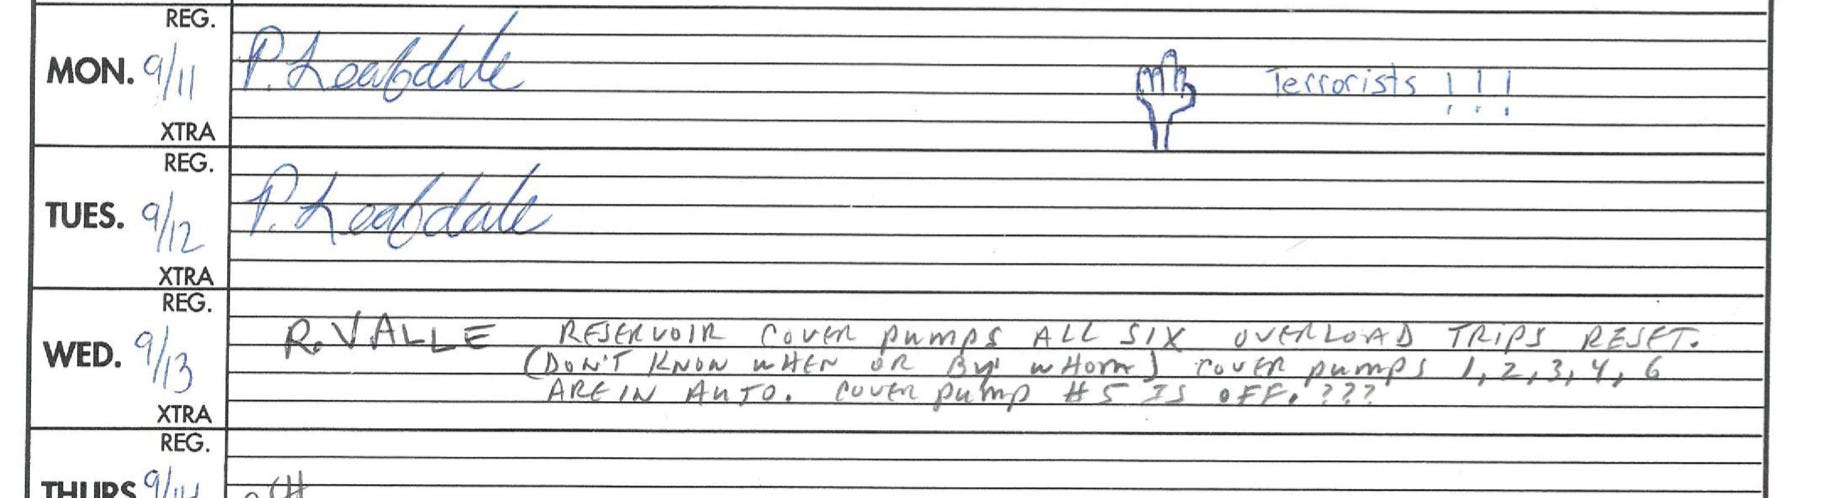 REG.
MON. 9/11 P. Leafdale Terrorists !!!
XTRA
REG.
TUES. 9/12 P. Leafdale
XTRA
REG.
WED. 9/13 R. VALLE RESERVOIR COVER PUMPS ALL SIX OVERLOAD TRIPS RESET.
(DON'T KNOW WHEN OR BY WHOM) COVER PUMPS 1, 2, 3, 4, 6
ARE IN AUTO. COVER PUMP #5 IS OFF. ???
XTRA
REG.
THURS 9/14